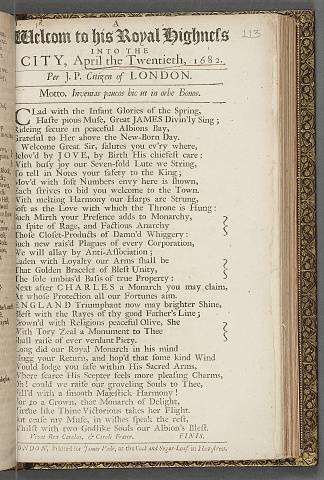 A
Welcom to his Royal Highness
INTO THE
CITY, April the Twentieth, 1682.
Per J. P. Citizen of LONDON.
Motto. Invenias paucos hic ut in orbe Bonos.
113
CLad with the Infant Glories of the Spring,
Haste pious Muse, Great JAMES Divin'ly Sing;
Rideing secure in peaceful Albions Bay,
Grateful to Her above the New-Born Day.
Welcome Great Sir, salutes you ev'ry where,
Belov'd by JOVE, by Birth His chiefest care:
With busy joy our Seven-fold Lute we String,
To tell in Notes your safety to the King;
Mov'd with soft Numbers envy here is shown,
Each strives to bid you welcome to the Town.
With melting Harmony our Harps are Strung,
Soft as the Love with which the Throne is Hung:
Such Mirth your Presence adds to Monarchy,
In spite of Rage, and Factious Anarchy
Those Closet-Products of Damn'd Whiggery:
Such new rais'd Plagues of every Corporation,
We will allay by Anti-Association;
Laden with Loyalty our Arms shall be
That Golden Bracelet of Blest Unity,
The sole unbias'd Basis of true Property:
Next after CHARLES a Monarch you may claim,
At whose Protection all our Fortunes aim.
ENGLAND Triumphant now may brighter Shine,
Blest with the Rayes of thy good Father's Line;
Crown'd with Religions peaceful Olive, She
With Tory Zeal a Monument to Thee
Shall raise of ever verdant Piety.
Long did our Royal Monarch in his mind
Hugg your Return, and hop'd that some kind Wind
Would lodge you safe within His Sacred Arms,
Where scarce His Scepter feels more pleasing Charms,
Oh! could we raise our groveling Souls to Thee,
Fill'd with a smooth Majestick Harmony!
For to a Crown, that Monarch of Delight,
Virtue like Thine Victorious takes her Flight.
But cease my Muse, in wishes speak the rest,
Whilst with two Godlike Souls our Albion's Blest.
Vivat Rex Carolus, & Circle Frater. FINIS.
LONDON, Printed for James Vade, at the Cock and Sugar-Loaf in Fleetstreet.